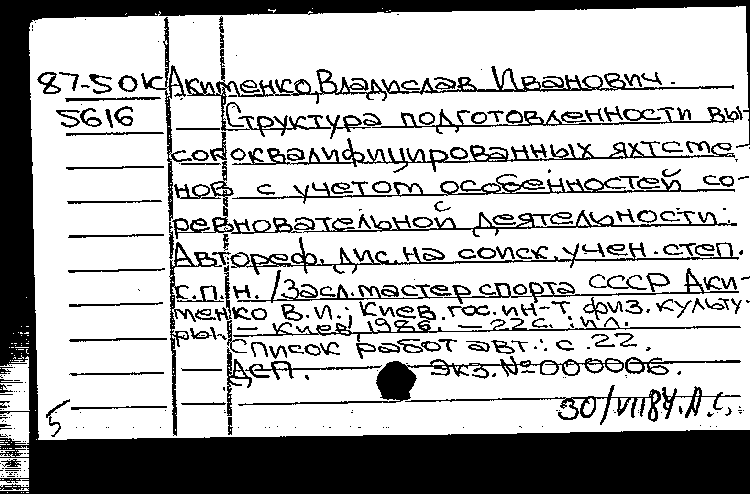 87-50К Акименко, Владислав Иванович.
5616 Структура подготовленности вы-
сококвалифицированных яхтсме-
нов с учетом особенностей со-
ревновательной деятельности:
Автореф. дис. на соиск. учен. степ.
к.п.н. /Засл. мастер спорта СССР Аки-
менко В.И.; Киев. гос. ин-т физ. культу-
ры. – Киев, 1986. – 22 с. : ил.
Список работ авт.: с. 22.
ДСП. Экз. № 000006.
5